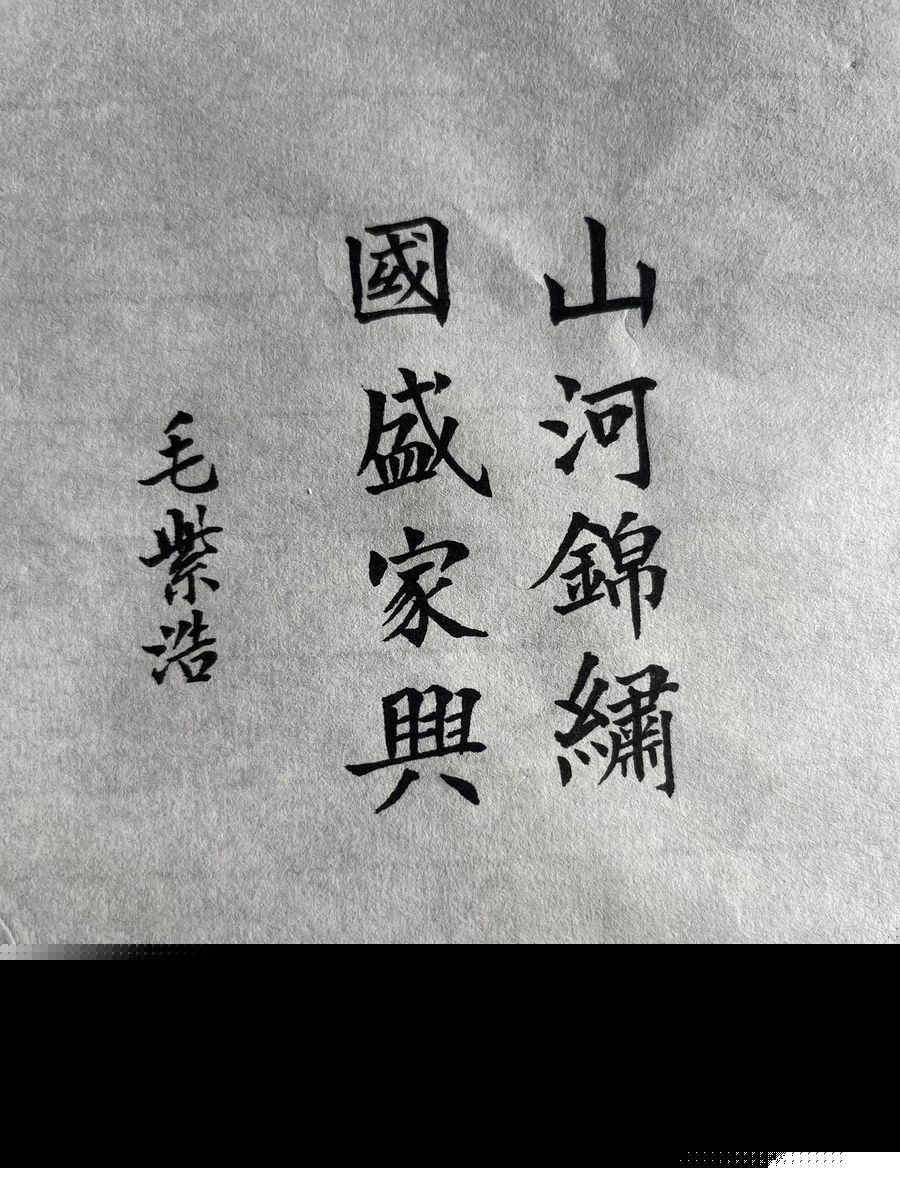 山河錦繡
國盛家興
毛紫浩